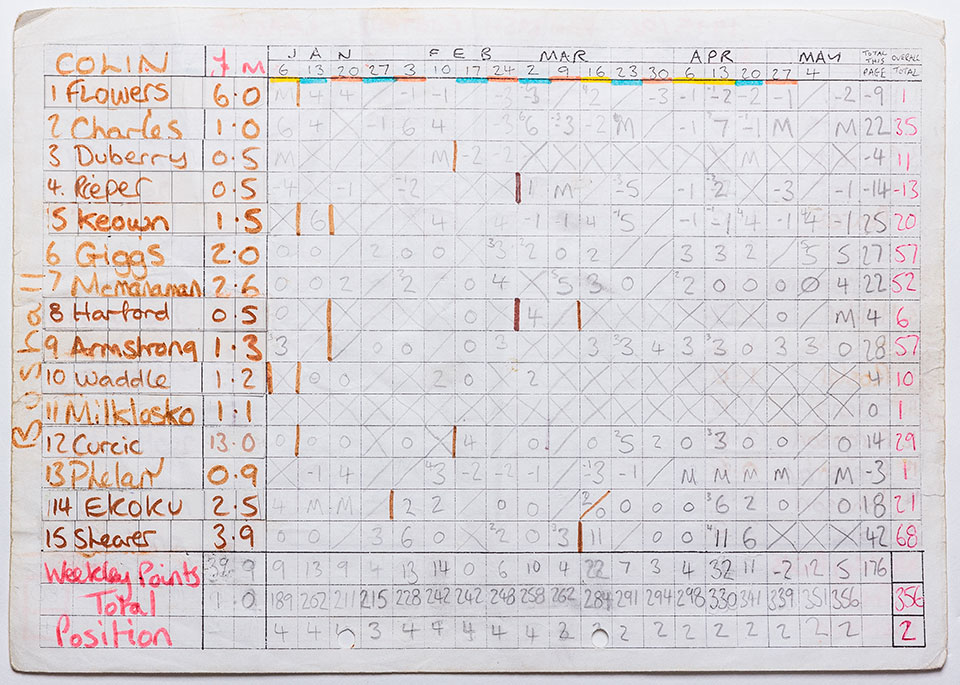 JAN FEB MAR APR MAY TOTAL THIS PAGE OVERALL TOTAL
COLIN £ M 6 13 20 27 3 10 17 24 2 9 16 23 30 6 13 20 27 4
1 Flowers 6.0 M 4 4 / -1 -1 -3 -3 -1 -2 -2 -1 -2 -9 1
2 Charles 1.0 6 4 X -1 6 4 6 -3 -2 M / -1 7 -1 M / M 22 35
3 Duberry 0.5 M M -2 M -4 11
4. Pieper 0.5 -4 X -1 -2 1 M -5 -1 2 -3 -1 -14 -13
5 Keown 1.5 6 4 -1 4 5 -1 -1 4 -1 4 -1 25 20
6 Giggs 2.0 0 0 2 0 0 0 2 0 2 3 3 2 0 5 5 27 57
7 Mcmanaman 2.6 0 0 2 2 0 0 4 5 3 0 2 0 0 0 0 4 22 52
8 Hartford 0.5 4 0 M 4 6
9 Armstrong 1.3 3 0 0 0 3 3 3 4 3 3 0 3 3 0 28 57
10 Waddle 1.2 0 0 2 0 2 4 10
11 Milklasko 1.1 0 1
12 Curcic 13.0 0 0 0 0 0 4 0 0 5 2 0 3 0 0 0 14 29
13 Phelan 0.9 -1 4 3 -2 -1 -1 -3 -1 M M M M M -3 1
14 EKOKU 2.5 4 M M 2 2 0 0 0 0 0 6 2 0 0 18 21
15 Shearer 3.9 0 0 3 6 0 2 0 3 11 11 6 42 68
Weekley Points 39 9 9 13 9 4 13 14 0 6 10 4 22 7 3 4 32 11 -2 12 5 176
Total 1.0 189 202 211 215 228 242 242 248 258 262 284 291 294 298 330 341 339 351 356 356
Position 4 4 3 4 4 4 4 4 2 2 2 2 2 2 2 2 2
Boshall